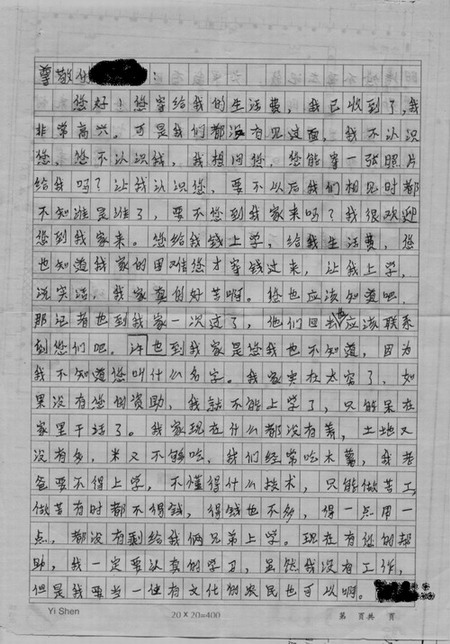 尊敬的:
您好!您寄给我的生活费,我已收到了,我
非常高兴。可是我们都没有见过面,我不认识
您,您不认识我,我想问您,您能寄一张照片
给我吗?让我认识您,要不以后我们相见时都
不知谁是谁了,要不您到我家来吗?我很欢迎
您到我家来。您给我钱上学,给我生活费,您
也知道我家的困难您才寄钱过来,让我上学,
说实话,我家真的好苦啊。您也应该知道吧,
那记者也到我家一次过了,他们回去应该联系
到您们吧。许也到我家是您我也不知道,因为
我不知道您叫什么名字。我家实在太穷了,如
果没有您们资助,我就不能上学了,只能呆在
家里干活了。我家现在什么都没有养,土地又
没有多,米又不够吃,我们经常吃木薯,我老
爸要不得上学,不懂得什么技术,只能做苦工
做苦有时都不得钱,得钱也不多,得一点用一
点,都没有剩给我俩兄弟上学。现在有您的帮
助,我一定要认真的学习,虽然我没有工作,
但是我要当一位有文化的农民也可以啊。
Yi Shen 20×20=400 第 页共 页